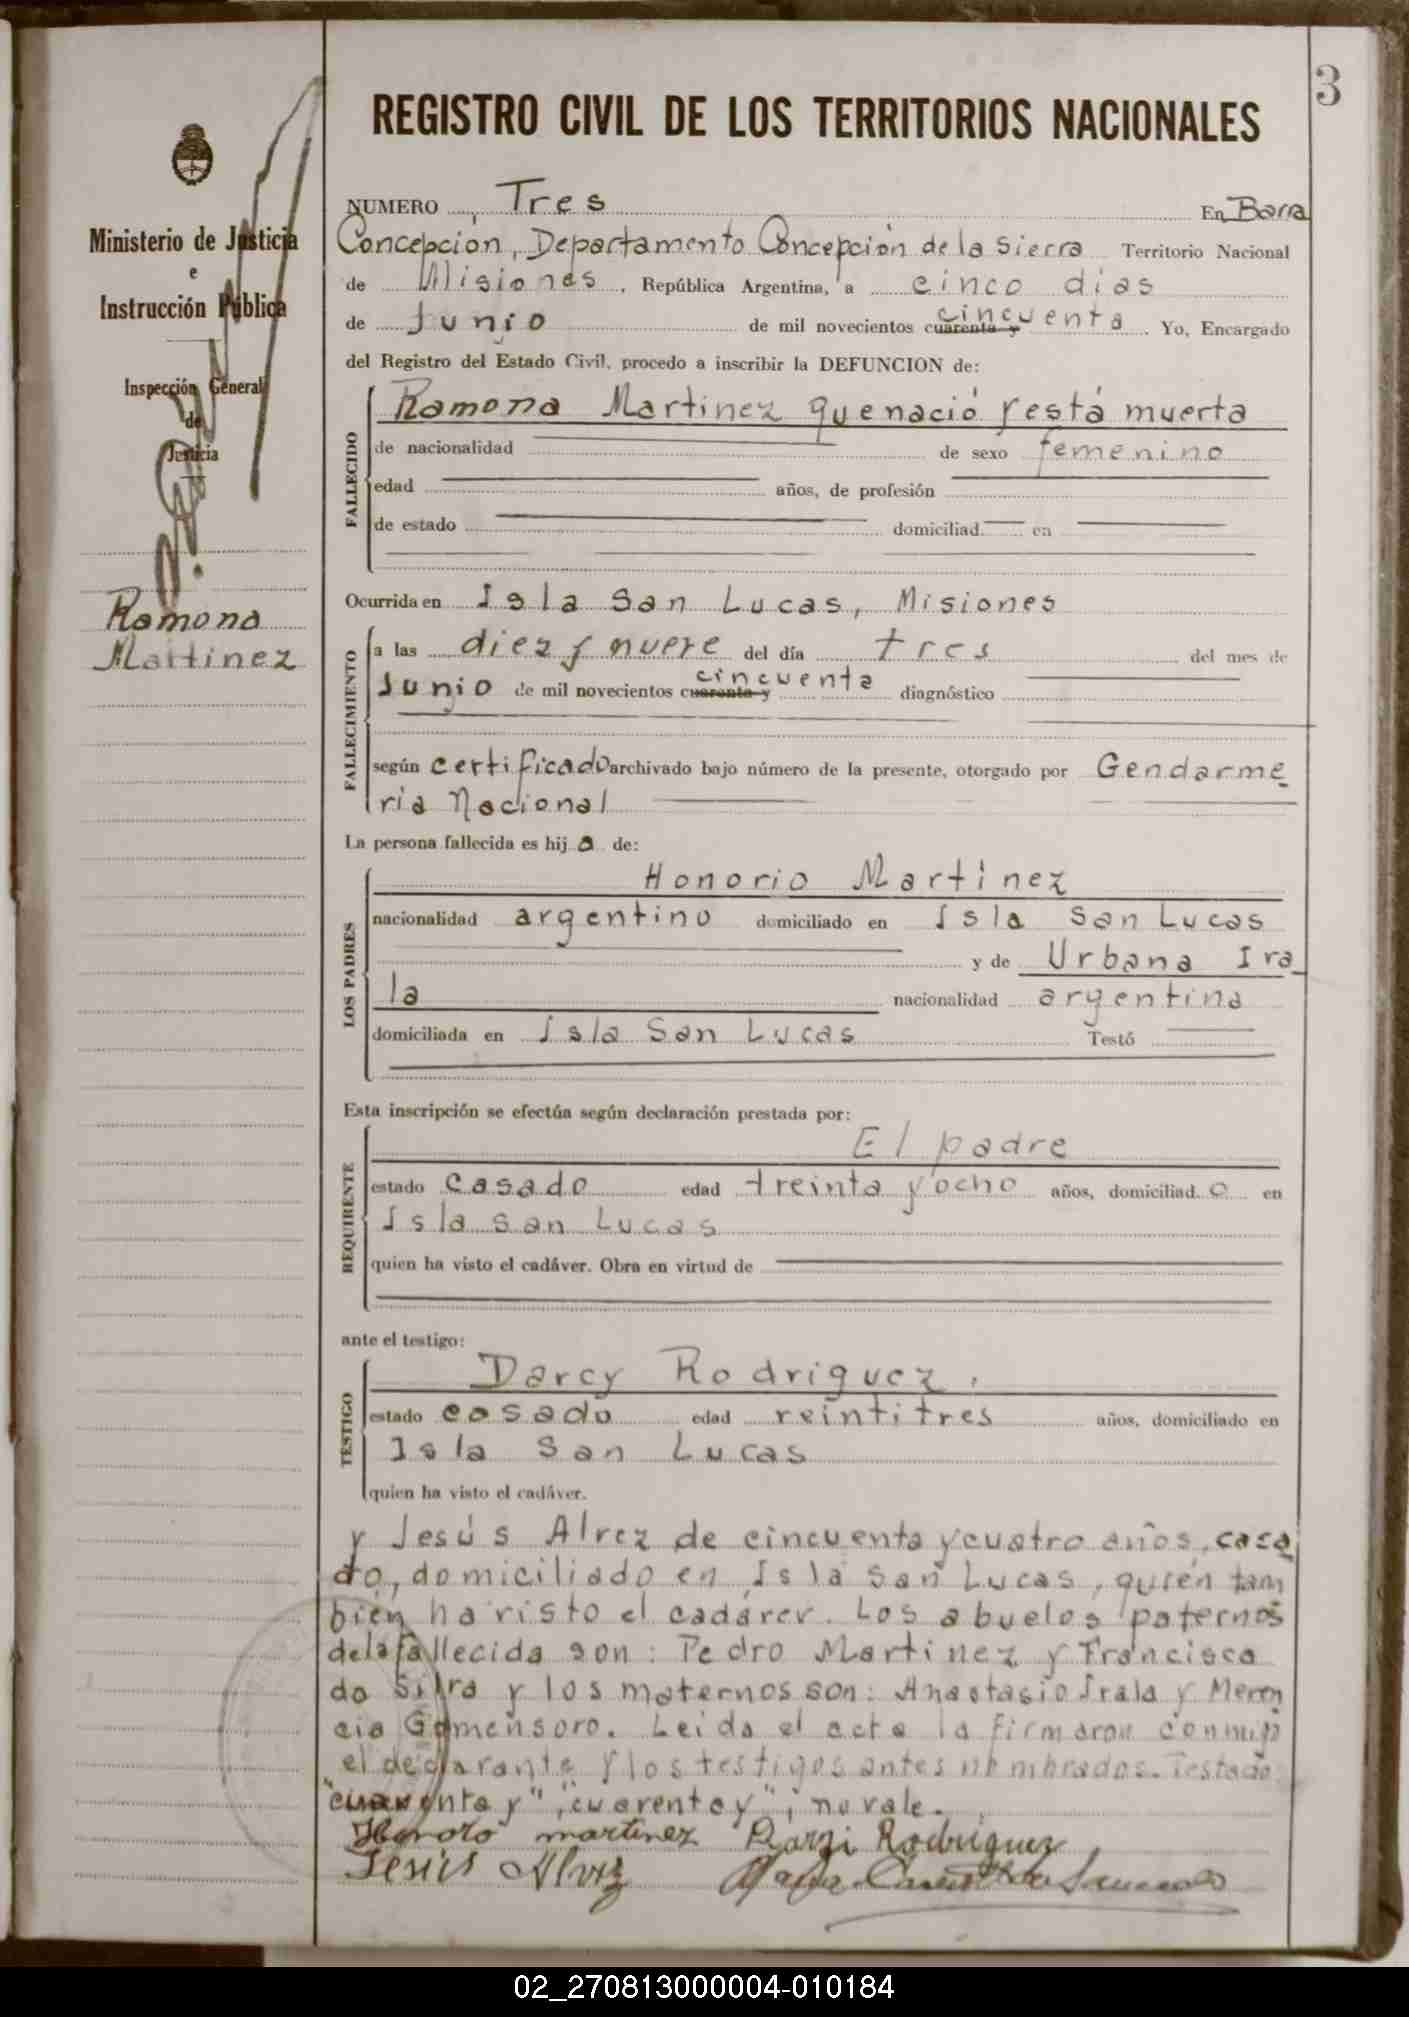 3
REGISTRO CIVIL DE LOS TERRITORIOS NACIONALES
Ministerio de Justicia
e
Instrucción Pública
Inspección General
de
Justicia
Ramona
Martinez
NUMERO Tres En Barra
Concepción, Departamento Concepción de la Sierra Territorio Nacional
de Misiones, República Argentina, a cinco días
de Junio de mil novecientos cuarenta y cincuenta. Yo, Encargado
del Registro del Estado Civil, procedo a inscribir la DEFUNCION de:
FALLECIDO
Ramona Martinez que nació y está muerta
de nacionalidad de sexo femenino
edad años, de profesión
de estado domiciliad en
Ocurrida en Isla San Lucas, Misiones
FALLECIMIENTO
a las diez y nueve del día tres del mes de
Junio de mil novecientos cuarenta y cincuenta diagnóstico
según certificado archivado bajo número de la presente, otorgado por Gendarme
ria Nacional
La persona fallecida es hija de:
LOS PADRES
Honorio Martinez
nacionalidad argentino domiciliado en Isla San Lucas
y de Urbana Ira
la nacionalidad argentina
domiciliada en Isla San Lucas Testó
Esta inscripción se efectúa según declaración prestada por:
REQUIRENTE
El padre
estado casado edad treinta y ocho años, domiciliado en
Isla San Lucas
quien ha visto el cadáver. Obra en virtud de
ante el testigo:
TESTIGO
Darcy Rodriguez,
estado casado edad veintitres años, domiciliado en
Isla San Lucas
quien ha visto el cadáver.
y Jesús Alvez de cincuenta y cuatro años, casa
do, domiciliado en Isla San Lucas, quien tam
bién ha visto el cadáver. Los abuelos paternos
de la fallecida son: Pedro Martinez y Francisca
da Silva y los maternos son: Anastasio Irala y Meren
cia Gomensoro. Leida el acta la firmaron conmigo
el declarante y los testigos antes nombrados. Testado
"cuarenta y", "cuarenta y", no vale.
martinez Darzi Rodriguez
Jesús Alvez
02_270813000004-010184